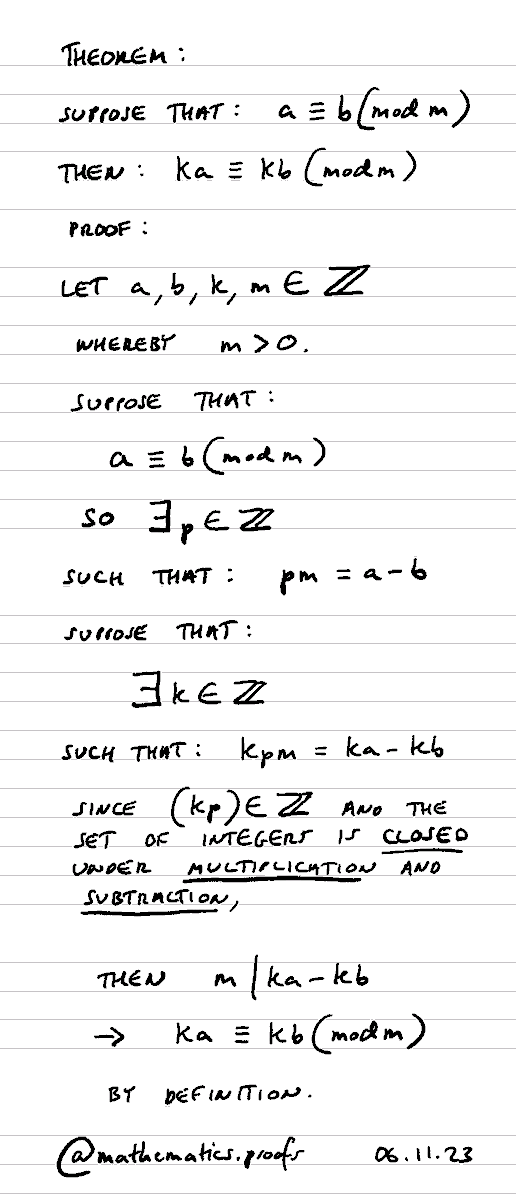 THEOREM :
SUPPOSE THAT : a ≡ b (mod m)
THEN : ka ≡ kb (mod m)
PROOF :
LET a, b, k, m ∈ ℤ
WHEREBY m > 0.
SUPPOSE THAT :
a ≡ b (mod m)
SO ∃ p ∈ ℤ
SUCH THAT : pm = a - b
SUPPOSE THAT :
∃ k ∈ ℤ
SUCH THAT : kpm = ka - kb
SINCE (kp) ∈ ℤ AND THE
SET OF INTEGERS IS CLOSED
UNDER MULTIPLICATION AND
SUBTRACTION,
THEN m | ka - kb
→ ka ≡ kb (mod m)
BY DEFINITION.
@mathematics.proofs 06.11.23